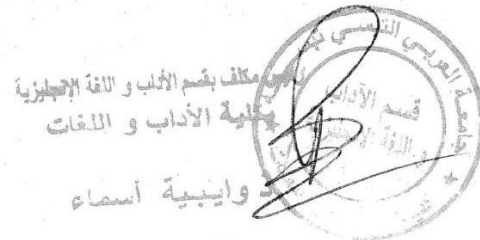 رئيس مكلف بقسم الآداب و اللغة الإنجليزية
بكلية الآداب و اللغات
وايبية أسماء
جامعة العربي التبسي
قسم الآداب
و اللغة الإنجليزية